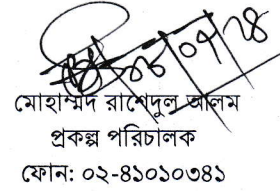 ০৮/০৭/২৪
মোহাম্মদ রাশেদুল আলম
প্রকল্প পরিচালক
ফোন: ০২-৪১০১০৩৪১